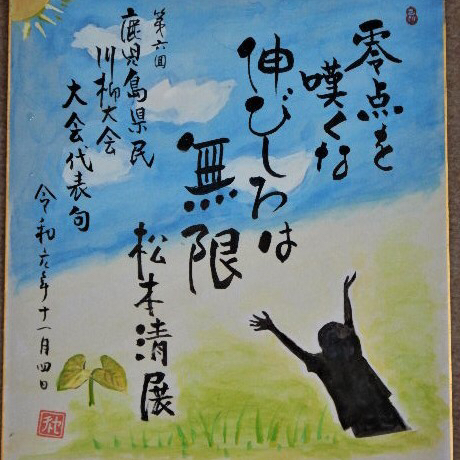 零点を
嘆くな
伸びしろは
無限
松本清展
第六回
鹿児島県民
川柳大会
大会代表句
令和元年十一月四日